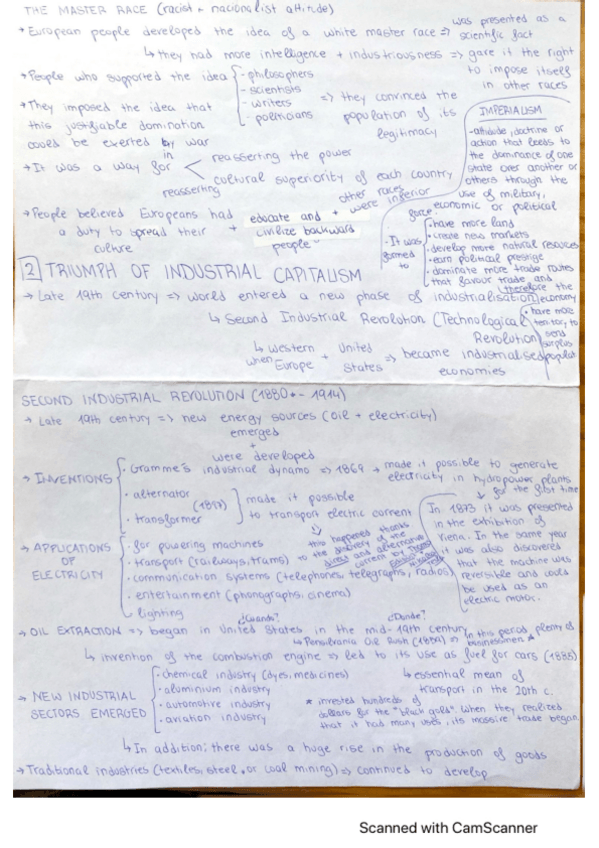 THE MASTER RACE (racist + nacionalist attitude)
→ European people developed the idea of a white master race ⇒ was presented as a scientific fact
↳ they had more intelligence + industriousness ⇒ gave it the right to impose itself in other races
→ People who supported the idea
· philosophers
- scientists
- writers
· politicians
⇒ they convinced the population of its legitimacy
→ They imposed the idea that this justifiable domination could be exerted by war
→ It was a way for in
reasserting the power
reasserting cultural superiority of each country
→ People believed Europeans had a duty to spread their culture
+ educate and civilize backward people"
+ other races were inferior
IMPERIALISM
-attitude, doctrine or action that leads to the dominance of one state over another or others through the use of military, economic or political force
- It was formed to
· have more land
· create new markets
· develop more natural resources
· earn political prestige
· dominate more trade routes that favour trade and therefore the economy
· have more territory, to send surplus populat
2 TRIUMPH OF INDUSTRIAL CAPITALISM
→ Late 19th century ⇒ world entered a new phase of industrialisation
↳ Second Industrial Revolution (Technological Revolution)
↳ when Western Europe + United States ⇒ became industrialised economies
SECOND INDUSTRIAL REVOLUTION (1880 - 1914)
→ Late 19th century ⇒ new energy sources (oil + electricity)
emerged
+
were developed
→ INVENTIONS
· Gramme's industrial dynamo ⇒ 1869 → made it possible to generate electricity in hydropower plants
↓ for the first time
· alternator
· transformer
made it possible to transport electric current
this happened thanks to the discovery of the direct and alternative current by
In 1873 it was presented in the exhibition of Viena. In the same year it was also discovered that the machine was reversible and could be used as an electric motor.
→ APPLICATIONS OF ELECTRICITY
· for powering machines
· transport (railways, trams)
· communication systems (telephones, telegraphs, radios)
· entertainment (phonographs, cinema)
· lighting
¿Cuándo? ¿Donde?
→ OIL EXTRACTION ⇒ began in United States in the mid-19th century
↳ Pensilvania Oil Rush (1859) ⇒ In this period plenty of businessmen *
↳ invention of the combustion engine ⇒ led to its use as fuel for cars (1885)
↳ essential mean of transport in the 20th c.
→ NEW INDUSTRIAL SECTORS EMERGED
· chemical industry (dyes, medicines)
· aluminium industry
· automotive industry
· aviation industry
* invested hundreds of dollars for the "black gold". When they realized that it had many uses, its massive trade began
↳ In addition; there was a huge rise in the production of goods
→ Traditional industries (textiles, steel, or coal mining) ⇒ continued to develop
Scanned with CamScanner